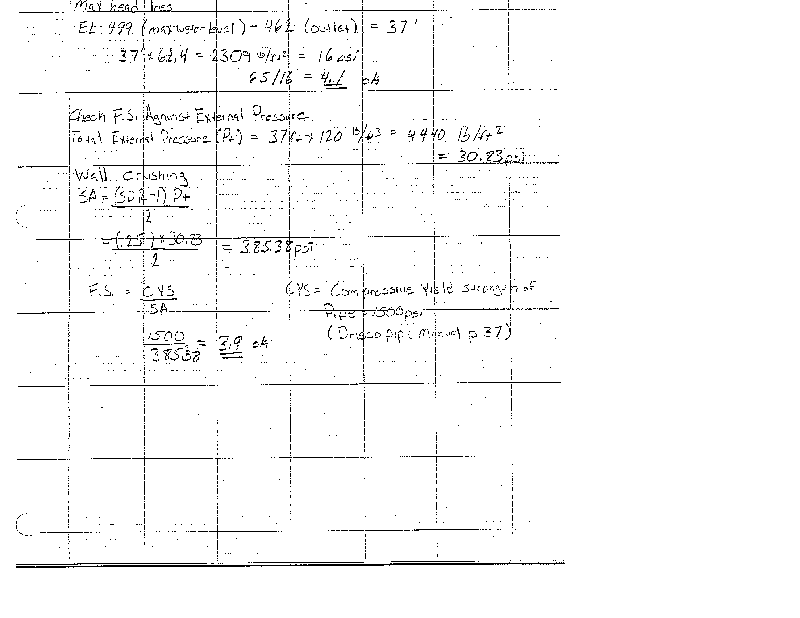 Max head lines
El. 499 (max water level) - 462 (outlet) = 37'
37' * 62.4 = 2309 lb/ft² = 16 psi
65/16 = 4.1 ok
Check F.S. Against External Pressure
Total External Pressure (Pt) = 37ft * 120 lb/ft3 = 4440 lb/ft2
= 30.83psi
Wall Crushing
SA = (SDR-1) Pt
2
= (25) * 30.83 = 385.38psi
2
F.S. = CYS CYS = Compressive Yield strength of
SA Pipe = 1500psi
1500 = 3.9 ok (Driscopipe Manual p 37)
385.38